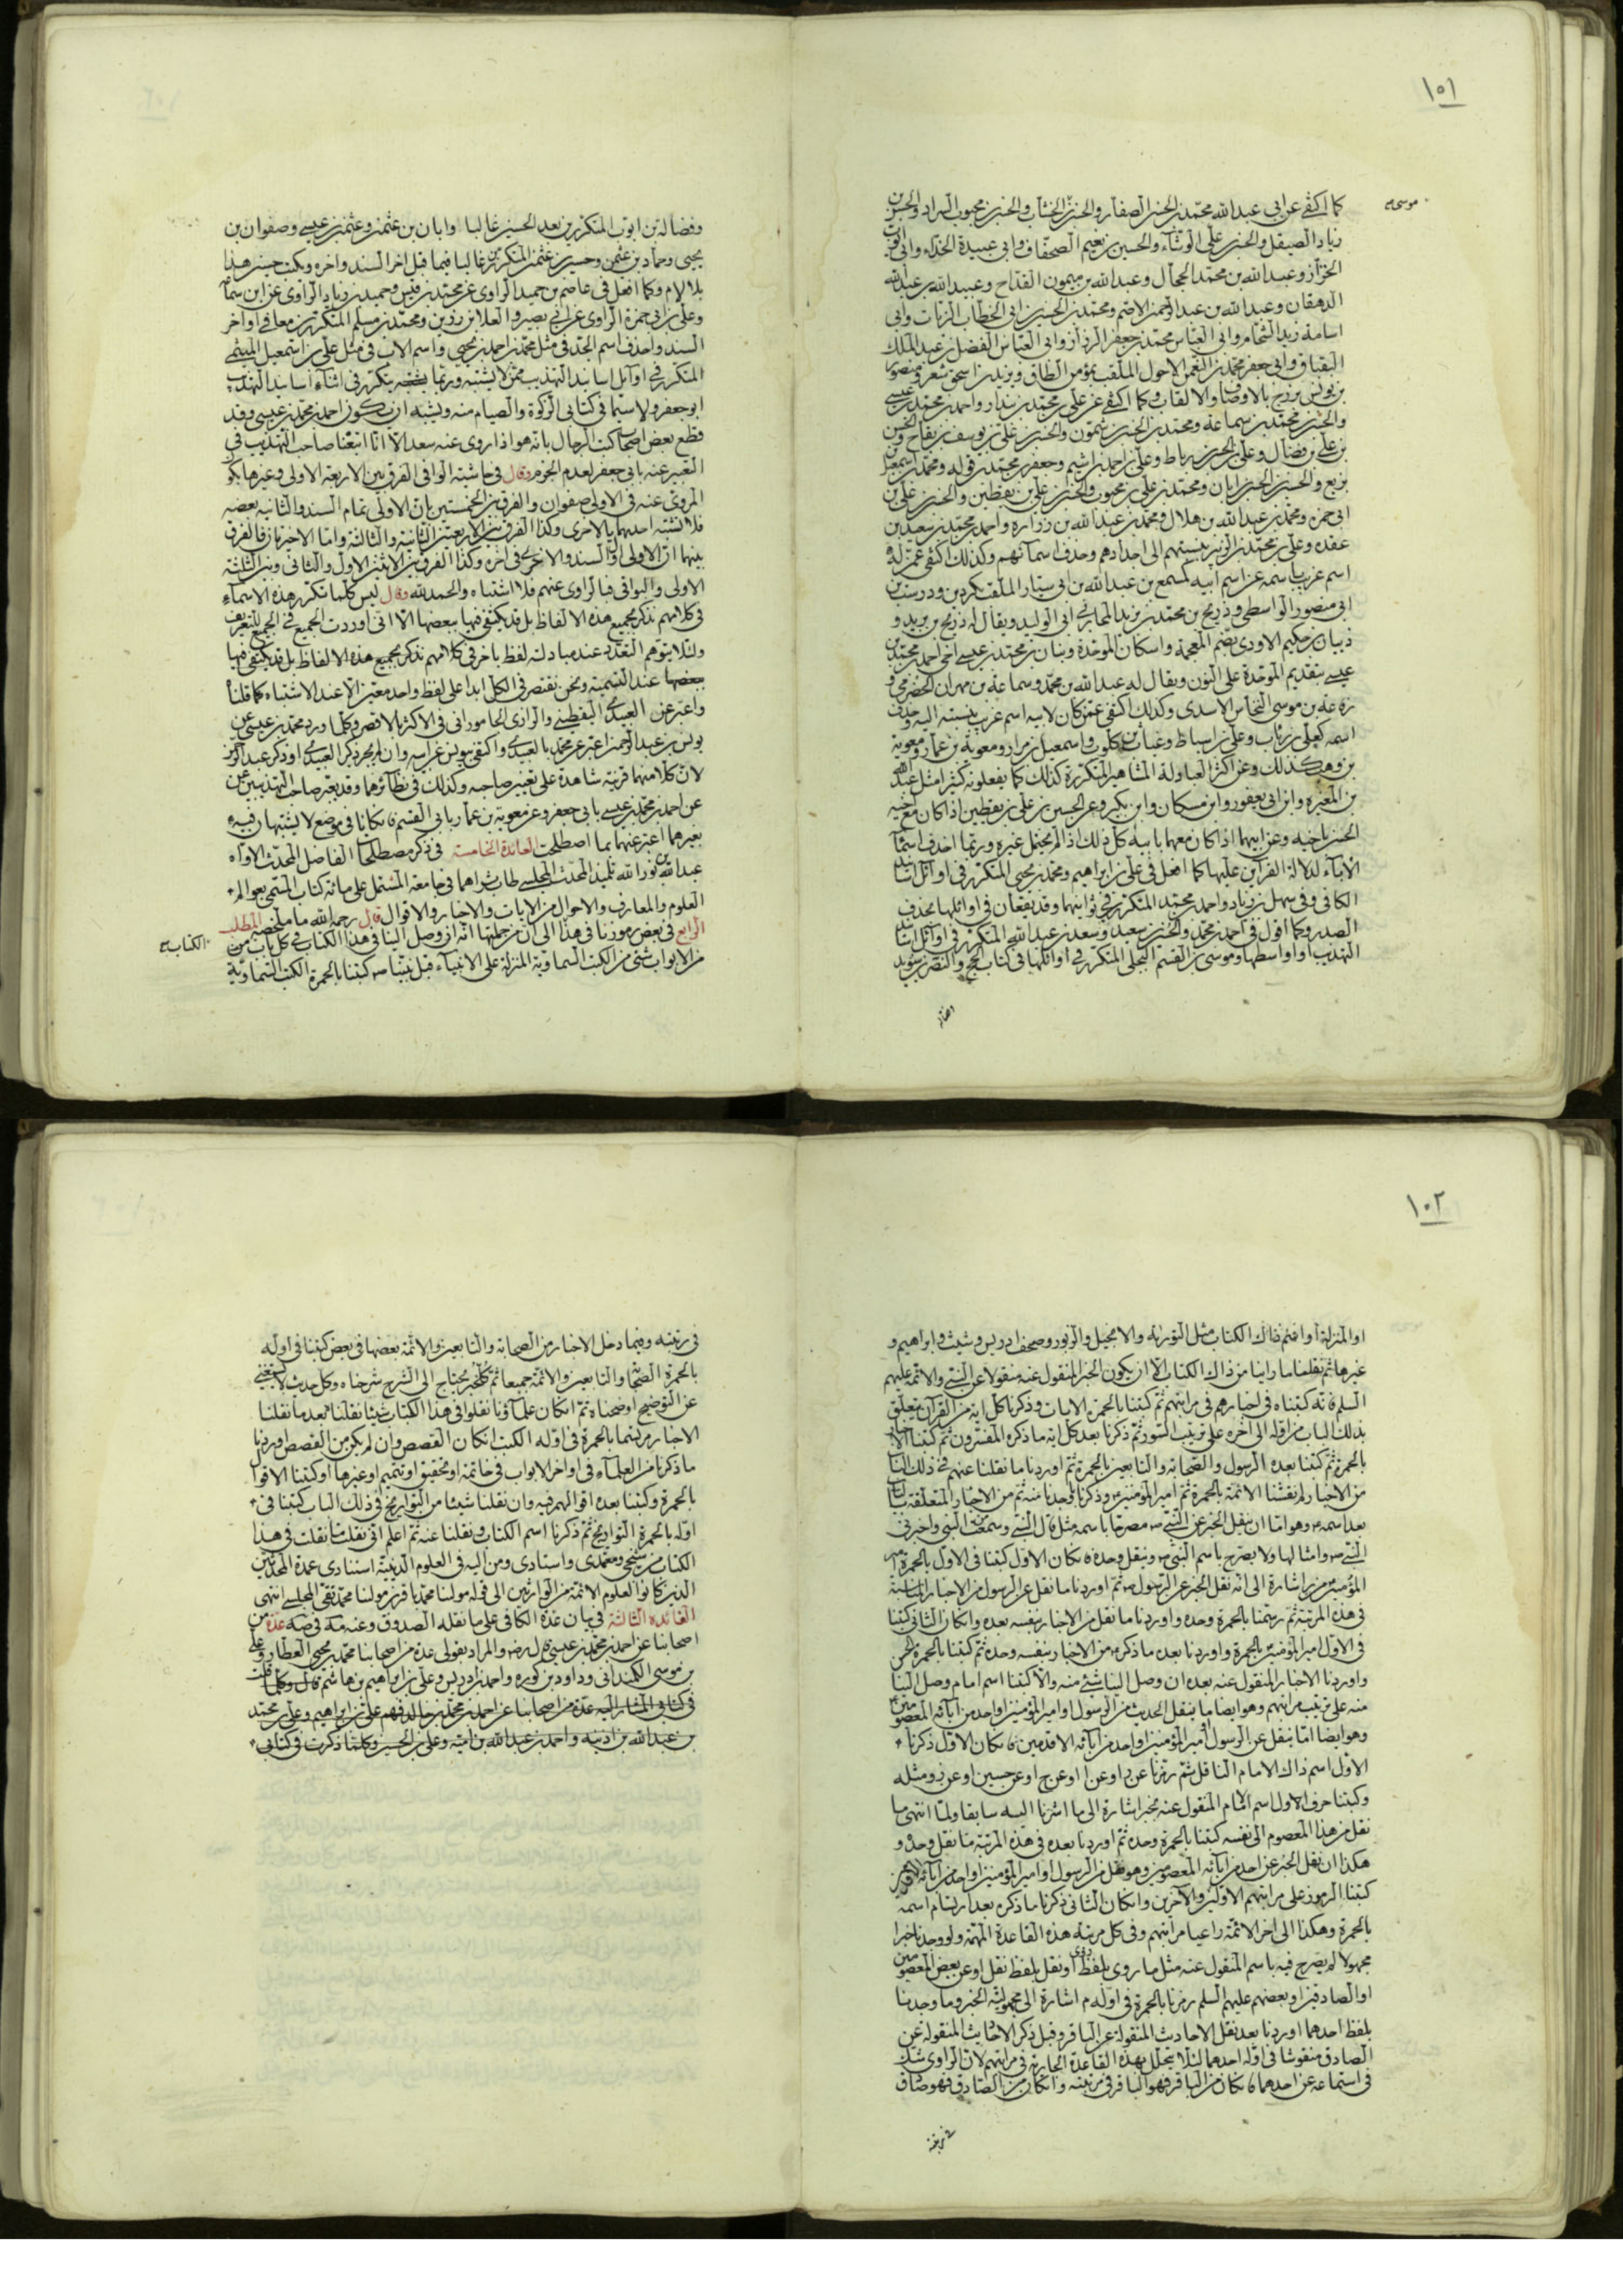 ١٥١
موسى
كما اكتفى عن ابى عبد الله محمد بن الحسن الصفار والحسن الخشاب والحسن بن محبوب السراد والحسن بن
زياد الصيقل والحسن بن على الوشاء والحسين بن نعيم الصحاف وابى عبيدة الحذاء وابى ايوب
الخزاز وعبد الله بن محمد الحجال وعبد الله بن ميمون القداح وعبيد الله بن عبد الله
الدهقان وعبد الله بن عبد الرحمن الاصم ومحمد بن الحسين بن ابى الخطاب الزيات وابى
اسامة زيد الشحام وابى العباس محمد بن جعفر الرزاز وابى العباس الفضل بن عبد الملك
البقباق وابى جعفر محمد بن النعمن الاحول الملقب بمؤمن الطاق ويزيد بن اسحق شعر ومنصور
بن يونس بزرج بالاوصاف والالقاب وكما اكتفى عن على بن محمد بن بندار واحمد بن محمد بن عيسى
والحسن بن محمد بن سماعة ومحمد بن الحسن بن شمون والحسن بن على بن يوسف بن بقاح والحسن
بن على بن فضال وعلى بن الحسن بن رباط وعلى بن احمد بن اشيم وجعفر بن محمد بن قولويه ومحمد بن اسمعيل
بن بزيع والحسن بن الحسن بن ابان ومحمد بن على بن محبوب والحسن بن على بن يقطين والحسن بن على بن
ابى حمزه ومحمد بن عبد الله بن هلال ومحمد بن عبد الله بن زرارة واحمد بن محمد بن سعيد بن
عقده وعلى بن محمد بن الزبير بنسبتهم الى اجدادهم وحذف اسماء ابائهم وكذلك اكتفى عمن له
اسم غريب باسمه عن اسم ابيه كمسمع بن عبد الله بن ابى سيار الملقب بكردين ودرست بن
ابى منصور الواسطى وذريح بن محمد بن يزيد المحاربى ابى الوليد ويقال له ذريح بن يزيد و
ذبيان بن حكيم الاودى بضم المعجمة واسكان الموحدة وبنان بن محمد بن عيسى اخى احمد بن محمد بن
عيسى بتقديم الموحدة على النون ويقال له عبد الله بن محمد وسماعة بن مهران الحضرمى و
زرعة بن موسى النخاس الاسدى وكذلك اكتفى عمن كان لابيه اسم غريب بنسبته اليه وحذف
اسمه كعلى بن رئاب وعلى بن اسباط وغياث بن كلوب واسمعيل بن مرار ومعوية بن عمار ومعوية
بن وهب كذلك وعن اكثر العبادلة المشاهير المتكررة كذلك كما يفعلونه كثيرا مثل عبد الله
بن المغيره وابن ابى يعفور وابن مسكان وابن بكير وعن الحسين بن على بن يقطين اذا كان مع اخيه
الحسن باخيه وعن ابيهما اذا كان معهما بابيه كل ذلك اذا لم يحتمل غيره وربما احذف اسماء
الاباء لدلالة القرائن عليها كما افعل فى على بن ابراهيم ومحمد بن يحيى المتكرر فى اوائل اسانيد
الكافى وفى سهل بن زياد واحمد بن محمد المتكرر فى ثوانيهما وقد يقعان فى اوائلها بحذف
الصدر وكما اقول فى احمد بن محمد والحسن بن سعيد وسعد بن عبد الله المتكرر فى اوائل اسانيد
التهذيب او اواسطها وموسى بن القسم البجلى المتكرر فى اوائلها فى كتاب الحج والنضر بن سويد
وفضالة
وفضالة بن ايوب المتكررين بعد الحسين غالبا وابان بن عثمن وعثمن بن عيسى وصفوان بن
يحيى وحماد بن عثمن وحسين بن عثمن المتكررين غالبا فيما قبل اخر السند واخره ويكتب حسين هذا
بلا لام وكما افعل فى عاصم بن حميد الراوى عن محمد بن قيس وحميد بن زياد الراوى عن ابن سماعة
وعلى بن ابى حمزة الراوى عن ابى بصير والعلا بن رزين ومحمد بن مسلم المتكررين معا فى اواخر
السند واحذف اسم الجد فى مثل محمد بن احمد بن يحيى واسم الاب فى مثل على بن اسمعيل الميثمى
المتكرر فى اوائل اسانيد التهذيب ممن لا يشتبه وربما يتكرر فى اثناء اسانيد التهذيب
ابو جعفر ولا سيما فى كتابى الزكوة والصيام منه ويشبه ان يكون احمد بن محمد بن عيسى وقد
قطع بعض اصحاب كتب الرجال بانه هو اذا روى عنه سعد الا انا اتبعنا صاحب التهذيب فى
التعبير عنه بابى جعفر لعدم الجزم وقال فى حاشية الوافى الفرق بين الاربعة الاولى وغيرها بكون
المروى عنه فى الاولى صفوان والفرق بين الخمستين بان الاولى تمام السند والثانيه بعضه
فلا تشتبه احديهما بالاخرى وكذا الفرق بين الاربعتين الثانية والثالثة واما الاخيرتان فالفرق
بينهما ان الاولى اول السند والاخرى فى اخره وكذا الفرق بين الاثنين الاول والثانى وبين الثلثة
الاولى والبواقى فبالراوى عنهم فلا اشتباه والحمد لله وقال ليس كلما تكرر هذه الاسماء
فى كلامهم نذكر بجميع هذه الالفاظ بل قد يكتفى فيها ببعضها الا انى اوردت الجميع فى الجميع للتعريف
ولئلا يتوهم التعدد عند مبادلة لفظ باخر فى كلامهم نذكر بجميع هذه الالفاظ بل قد يكتفى فيها
ببعضها عند التسمية ونحن نقتصر فى الكل ابدا على لفظ واحد معين الا عند الاشتباه كما قلنا
واعبر عن العبيدى اليقطينى والرازى الجامورانى فى الاكثر الاقصر وكلما ورد محمد بن عيسى عن
يونس بن عبد الرحمن اعبر عن محمد بالعبيدى واكتفى بيونس عن ابيه وان لم يجر ذكر العبيدى او ذكر عبد الرحمن
لان كلا منهما قرينة شاهدة على تعيين صاحبه وكذلك فى نظائرهما وقد يعبر صاحب التهذيبين
عن احمد بن محمد بن عيسى بابى جعفر وعن معوية بن عمار بابى القسم فان كانا فى موضع لا يشتبهان فيه
بغيرهما اعبر عنهما بما اصطلحت العائدة الخامسة فى ذكر مصطلحات الفاضل المحدث الاواه
عبد الله بن نور الله تلميذ المحدث المجلسى طاب ثراهما فى جامعه المشتمل على مائة كتاب المسمى بعوالم
العلوم والمعارف والاحوال من الايات والاخبار والاقوال قال رحمه الله ما ملخصه المطلب
الرابع فى بعض رموزنا فى هذا الى ان من جملتها انه ان وصل الينا فى هذا الكتاب فى كل باب من
الكتاب
من الابواب شئ من الكتب السماوية المنزلة على الانبياء قبل نبينا ص كتبنا بالحمرة الكتب السماوية
١٠٢
او المنزلة او افتتح ذاك الكتاب مثل التورية والانجيل والزبور وصحف ادريس وشيث وابراهيم و
غيرها ثم نقلنا ما راينا من ذاك الكتاب الا ان يكون الخبر المنقول عنه منقولا عن النبى والائمة عليهم
السلم فانه كتبناه فى اخبارهم فى مراتبهم ثم كتبنا بالحمرة الايات وذكرنا كل اية من القرآن يتعلق
بذلك الباب من اوله الى آخره على ترتيب السور ثم ذكرنا بعد كل اية ما ذكره المفسرون ثم كتبنا الاخبار
بالحمرة ثم كتبنا بعده الرسول والصحابة والتابعين بالحمرة ثم اوردنا ما نقلنا عنهم فى ذلك الباب
من الاخبار ثم نقشنا الائمة بالحمرة ثم امير المؤمنين وذكرنا ما وجدنا عنه ثم من الاخبار المتعلقة بالباب
بعد اسمه وهو اما ان ينقل الخبر عن النبى ص مصرحا باسمه مثل قال النبى وسمعت النبى واخبرنى
النبى ص وامثالها ولا يصرح باسم النبى ص وينقل وحده فان كان الاول كتبنا فى الاول بالحمرة امير
المؤمنين اشارة الى انه نقل الخبر عن الرسول ص ثم اوردنا ما نقل عن الرسول من الاخبار المناسبة
فى هذه المرتبة ثم رسمنا بالحمرة وحده واوردنا ما نقل من الاخبار بنفسه بعده وان كان الثانى كتبنا
فى الاول امير المؤمنين بالحمرة واوردنا بعده ما ذكره من الاخبار بنفسه وحده ثم كتبنا بالحمرة الحسن
واوردنا الاخبار المنقول عنه بعده ان وصل الينا شئ منه والا كتبنا اسم امام وصل الينا
منه على ترتيب مراتبهم وهو ايضا ما ينقل الحديث من الرسول او امير المؤمنين او احد من آبائه المعصومين
وهو ايضا اما ينقل عن الرسول او امير المؤمنين او احد من آبائه الاقدمين فان كان الاول ذكرنا
الاول اسم ذاك الامام الناقل ثم رمزنا عن د او عن ا او عن ج او عن حسين او عن ومثله
وكتبنا حرف الاول اسم الامام المنقول عنه بخبر اشارة الى ما اشرنا اليه سابقا ولما انتهى ما
نقل من هذا المعصوم الى نفسه كتبنا بالحمرة وحده ثم اوردنا بعده فى هذه المرتبة ما نقل وحده و
هكذا ان نقل الخبر عن احد من آبائه المعصومين وهو نقل من الرسول او امير المؤمنين او احد من آبائه الآخرين
كتبنا الرموز على مراتبهم الاولين والآخرين وان كان الثانى ذكرنا ما ذكره بعد ارتسام اسمه
بالحمرة وهكذا الى اخر الائمة راعيا مراتبهم وفى كل مرتبة هذه القاعدة المهمة ولو وجدنا خبرا
مجهولا لم يصرح فيه باسم المنقول عنه مثل ما روى بلفظ روى او نقل بلفظ نقل او عن بعض المعصومين
او الصادقين او بعضهم عليهم السلم رمزنا بالحمرة فى اوله م اشارة الى مجهولية الخبر وما وجدنا
بلفظ احدهما اوردنا بعد نقل الاحاديث المنقولة عن الباقر وقبل ذكر الاحاديث المنقولة عن
الصادق منقوشا فى اوله احدهما لئلا يتخلل بهذه القاعدة الجارية فى مراتبهم لان الراوى شك
فى استماعه عن احدهما فان كان من الباقر فهو الباقر فى مرتبته وان كان من الصادق فهو صادق
فى مرتبته
فى رتبته وفيما دخل الاخبار من الصحابة والتابعين والائمة بعضها فى بعض كتبنا فى اوله
بالحمرة الصحابة والتابعين والائمة جميعا ثم كل خبر يحتاج الى الشرح شرحناه وكل حديث لا يستغنى
عن التوضيح اوضحناه ثم ان كان علماؤنا نقلوا فى هذا الكتاب شيئا نقلنا بعد ما نقلنا
الاخبار مرتبتها بالحمرة فى اوله الكتب ان كان القصص وان لم يكن من القصص اوردنا
ما ذكرنا من العلماء فى اواخر الابواب فى خاتمة او تحقيق او تتميم او غيرها او كتبنا الاقوال
بالحمرة وكتبنا بعده اقوالهم فيه وان نقلنا شيئا من التواريخ فى ذلك الباب كتبنا فى
اوله بالحمرة التواريخ ثم ذكرنا اسم الكتاب ونقلنا عنه ثم اعلم انى نقلت ما نقلت فى هذا
الكتاب من شيخى ومعتمدى واستادى ومن اليه فى العلوم الدينية استنادى عمدة المحدثين
الذين كانوا لعلوم الائمة من الوارثين الى قوله مولنا محمد باقر بن مولنا محمد تقى المجلسى انتهى
الفائدة الثالثة فى بيان عدة الكافى على ما نقله الصدوق وعنه صه فى صه عدة من
اصحابنا عن احمد بن محمد بن عيسى قال رض والمراد بقولى عدة من اصحابنا محمد بن يحيى العطار وعلى
بن موسى الكمندانى وداود بن كوره واحمد بن ادريس وعلى بن ابراهيم بن هاشم قال وكلما قلت
فى كتابى المشار اليه عدة من اصحابنا عن احمد بن محمد بن خالد فهم على بن ابراهيم وعلى بن محمد
بن عبد الله بن اذينه واحمد بن عبد الله بن امية وعلى بن الحسين وكلما ذكرت فى كتابى